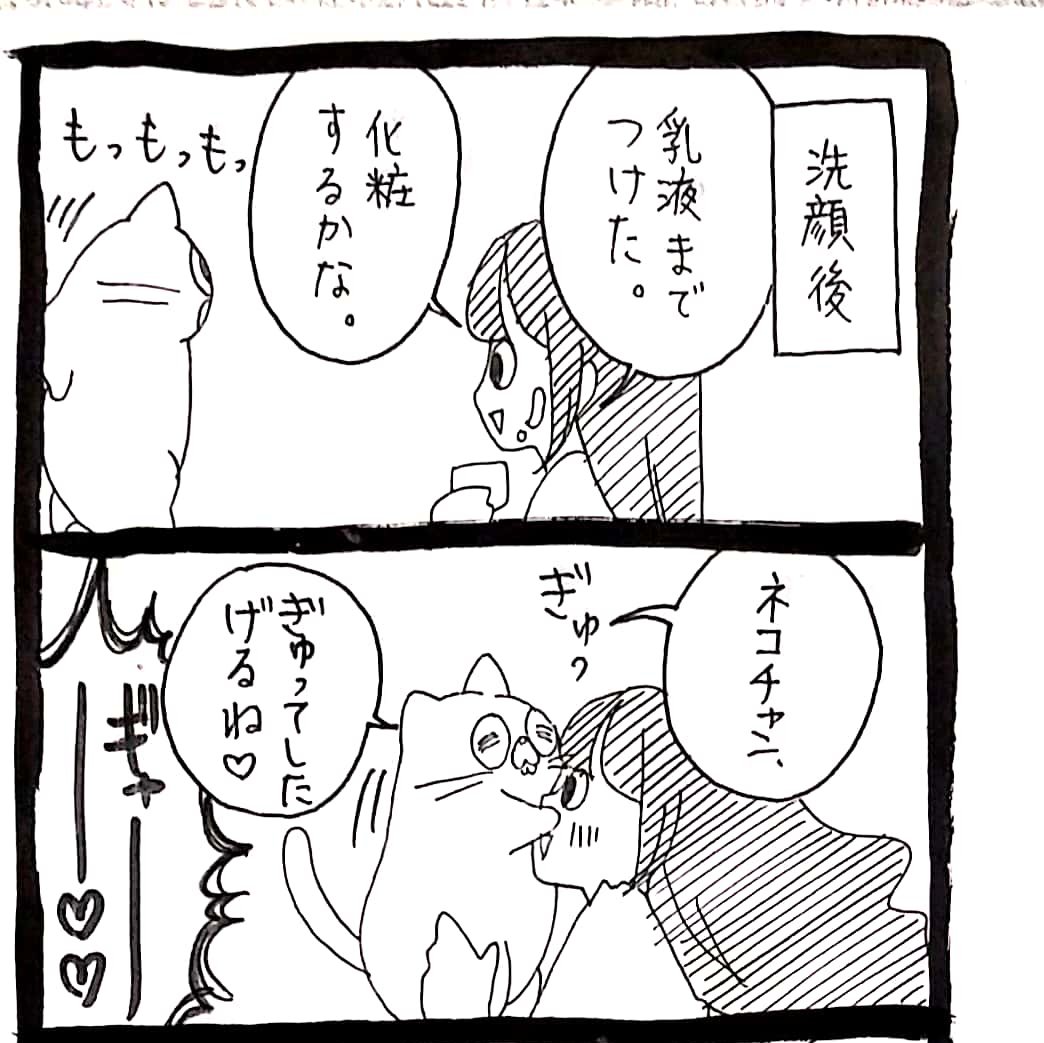 洗顔後
乳液まで
つけた。
化粧
するかな。
もっもっもっ
ネコチャン、
ぎゅっ
ぎゅってした
げるね♡
ぎゃ
||♡♡